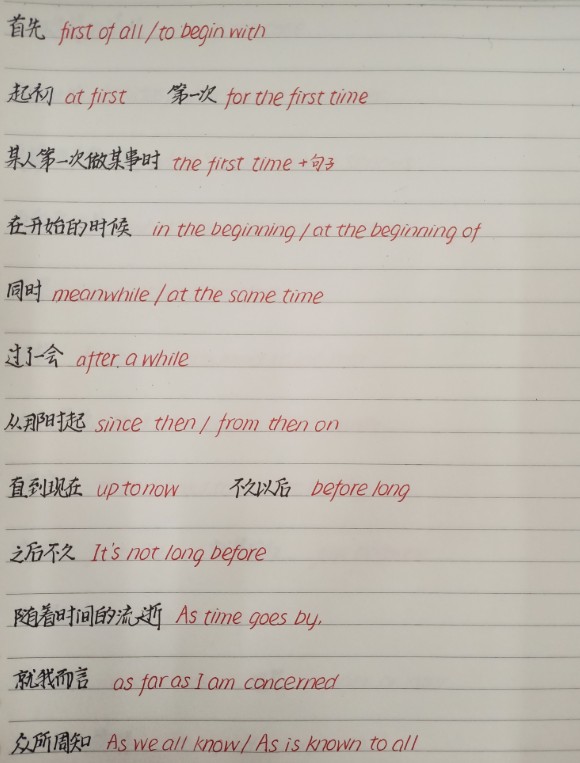 首先 first of all / to begin with
起初 at first 第一次 for the first time
某人第一次做某事时 the first time + 句子
在开始的时候 in the beginning / at the beginning of
同时 meanwhile / at the same time
过了一会 after a while
从那时起 since then / from then on
直到现在 up to now 不久以后 before long
之后不久 It's not long before
随着时间的流逝 As time goes by,
就我而言 as far as I am concerned
众所周知 As we all know / As is known to all